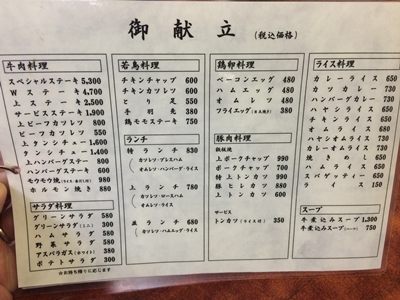 御献立
(税込価格)
牛肉料理
スペシャルステーキ 5,300
Wステーキ 4,700
上ステーキ 2,500
サービスステーキ 1,900
上ビーフカツレツ 800
ビーフカツレツ 550
上タンシチュー 1,600
タンシチュー 1,400
上ハンバーグステー 800
ハンバーグステーキ 600
モウモウ焼
ホルモン焼き 880
サラダ料理
グリーンサラダ 580
グリーンサラダ(ミニ) 300
ハムサラダ 580
野菜サラダ 580
アスパラガス(ホワイト) 380
ポテトサラダ 300
※お持ち帰りに応じます
若鳥料理
チキンチャップ 600
チキンカツレツ 600
とり足 550
手羽先 380
鶏モモステーキ 750
ランチ
特ランチ 830
カツレツ・プレスハム
オムレツ・ハンバーグ・ライス
上ランチ 780
カツレツ・ロースハム
オムレツ・ライス
並ランチ 680
カツレツ・ハムエッグ・ライス
鶏卵料理
ベーコンエッグ 480
ハムエッグ 480
オムレツ 480
フライエッグ(目玉焼き) 380
豚肉料理
鉄板焼
上ポークチャップ 990
ポークチャップ 700
特上トンカツ 990
豚ヒレカツ 880
上トンカツ 600
サービス
トンカツ(ライス付) 350
ライス料理
カレーライス 650
カツカレー 730
ハンバーグカレー 750
チキンライス 650
オムライス 680
ハヤシオムライス 750
カレーオムライス 750
焼きめし 650
ハムライス 650
スパゲッティー 650
ライス 150
スープ
牛煮込みスープ 1,300
牛煮込みスープ(ハーフ) 750